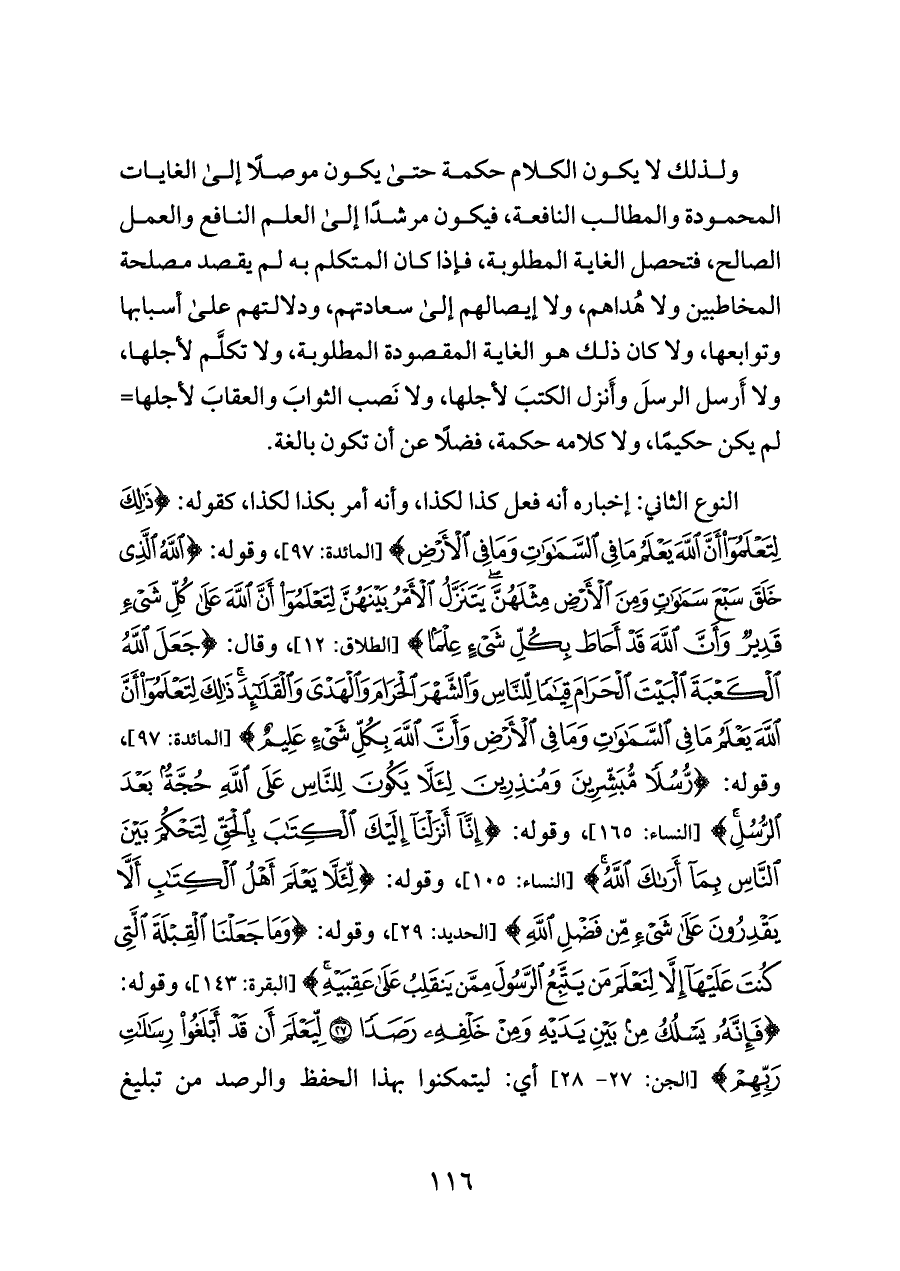 ولـذلك لا يكـون الكـلام حكمـة حتـىٰ يكـون موصـلًا إلـىٰ الغايـات
المحمـودة والمطالـب النافعـة، فيكـون مرشـدًا إلـىٰ العلـم النـافع والعمـل
الصالح، فتحصل الغاية المطلوبـة، فـإذا كـان المـتكلم بـه لـم يقـصد مـصلحة
المخاطبين ولا هُداهم، ولا إيـصالهم إلـىٰ سـعادتهم، ودلالـتهم علـىٰ أسـبابها
وتوابعها، ولا كان ذلـك هـو الغاية المقـصودة المطلوبـة، ولا تكلَّـم لأجلهـا،
ولا أَرسل الرسلَ وأَنزل الكتبَ لأجلها، ولا نَصب الثوابَ والعقابَ لأجلها=
لم يكن حكيمًا، ولا كلامه حكمة، فضلًا عن أن تكون بالغة.
النوع الثاني: إخباره أنه فعل كذا لكذا، وأنه أمر بكذا لكذا، كقوله: ﴿ذَٰلِكَ
لِتَعْلَمُوٓا۟ أَنَّ ٱللَّهَ يَعْلَمُ مَا فِى ٱلسَّمَـٰوَٰتِ وَمَا فِى ٱلْأَرْضِ﴾ [المائدة: ٩٧]، وقوله: ﴿ٱللَّهُ ٱلَّذِى
خَلَقَ سَبْعَ سَمَـٰوَٰتٍ وَمِنَ ٱلْأَرْضِ مِثْلَهُنَّۖ يَتَنَزَّلُ ٱلْأَمْرُ بَيْنَهُنَّ لِتَعْلَمُوٓا۟ أَنَّ ٱللَّهَ عَلَىٰ كُلِّ شَىْءٍ
قَدِيرٌ وَأَنَّ ٱللَّهَ قَدْ أَحَاطَ بِكُلِّ شَىْءٍ عِلْمًۢا﴾ [الطلاق: ١٢]، وقال: ﴿جَعَلَ ٱللَّهُ
ٱلْكَعْبَةَ ٱلْبَيْتَ ٱلْحَرَامَ قِيَـٰمًا لِّلنَّاسِ وَٱلشَّهْرَ ٱلْحَرَامَ وَٱلْهَدْىَ وَٱلْقَلَـٰٓئِدَۚ ذَٰلِكَ لِتَعْلَمُوٓا۟ أَنَّ
ٱللَّهَ يَعْلَمُ مَا فِى ٱلسَّمَـٰوَٰتِ وَمَا فِى ٱلْأَرْضِ وَأَنَّ ٱللَّهَ بِكُلِّ شَىْءٍ عَلِيمٌ﴾ [المائدة: ٩٧]،
وقوله: ﴿رُّسُلًا مُّبَشِّرِينَ وَمُنذِرِينَ لِئَلَّا يَكُونَ لِلنَّاسِ عَلَى ٱللَّهِ حُجَّةٌۢ بَعْدَ
ٱلرُّسُلِۚ﴾ [النساء: ١٦٥]، وقوله: ﴿إِنَّآ أَنزَلْنَآ إِلَيْكَ ٱلْكِتَـٰبَ بِٱلْحَقِّ لِتَحْكُمَ بَيْنَ
ٱلنَّاسِ بِمَآ أَرَىٰكَ ٱللَّهُۚ﴾ [النساء: ١٠٥]، وقوله: ﴿لِّئَلَّا يَعْلَمَ أَهْلُ ٱلْكِتَـٰبِ أَلَّا
يَقْدِرُونَ عَلَىٰ شَىْءٍ مِّن فَضْلِ ٱللَّهِ﴾ [الحديد: ٢٩]، وقوله: ﴿وَمَا جَعَلْنَا ٱلْقِبْلَةَ ٱلَّتِى
كُنتَ عَلَيْهَآ إِلَّا لِنَعْلَمَ مَن يَتَّبِعُ ٱلرَّسُولَ مِمَّن يَنقَلِبُ عَلَىٰ عَقِبَيْهِۚ﴾ [البقرة: ١٤٣]، وقوله:
﴿فَإِنَّهُۥ يَسْلُكُ مِنۢ بَيْنِ يَدَيْهِ وَمِنْ خَلْفِهِۦ رَصَدًا ۝٢٧ لِّيَعْلَمَ أَن قَدْ أَبْلَغُوا۟ رِسَـٰلَـٰتِ
رَبِّهِمْ﴾ [الجن: ٢٧- ٢٨] أي: ليتمكنوا بهذا الحفظ والرصد من تبليغ
١١٦